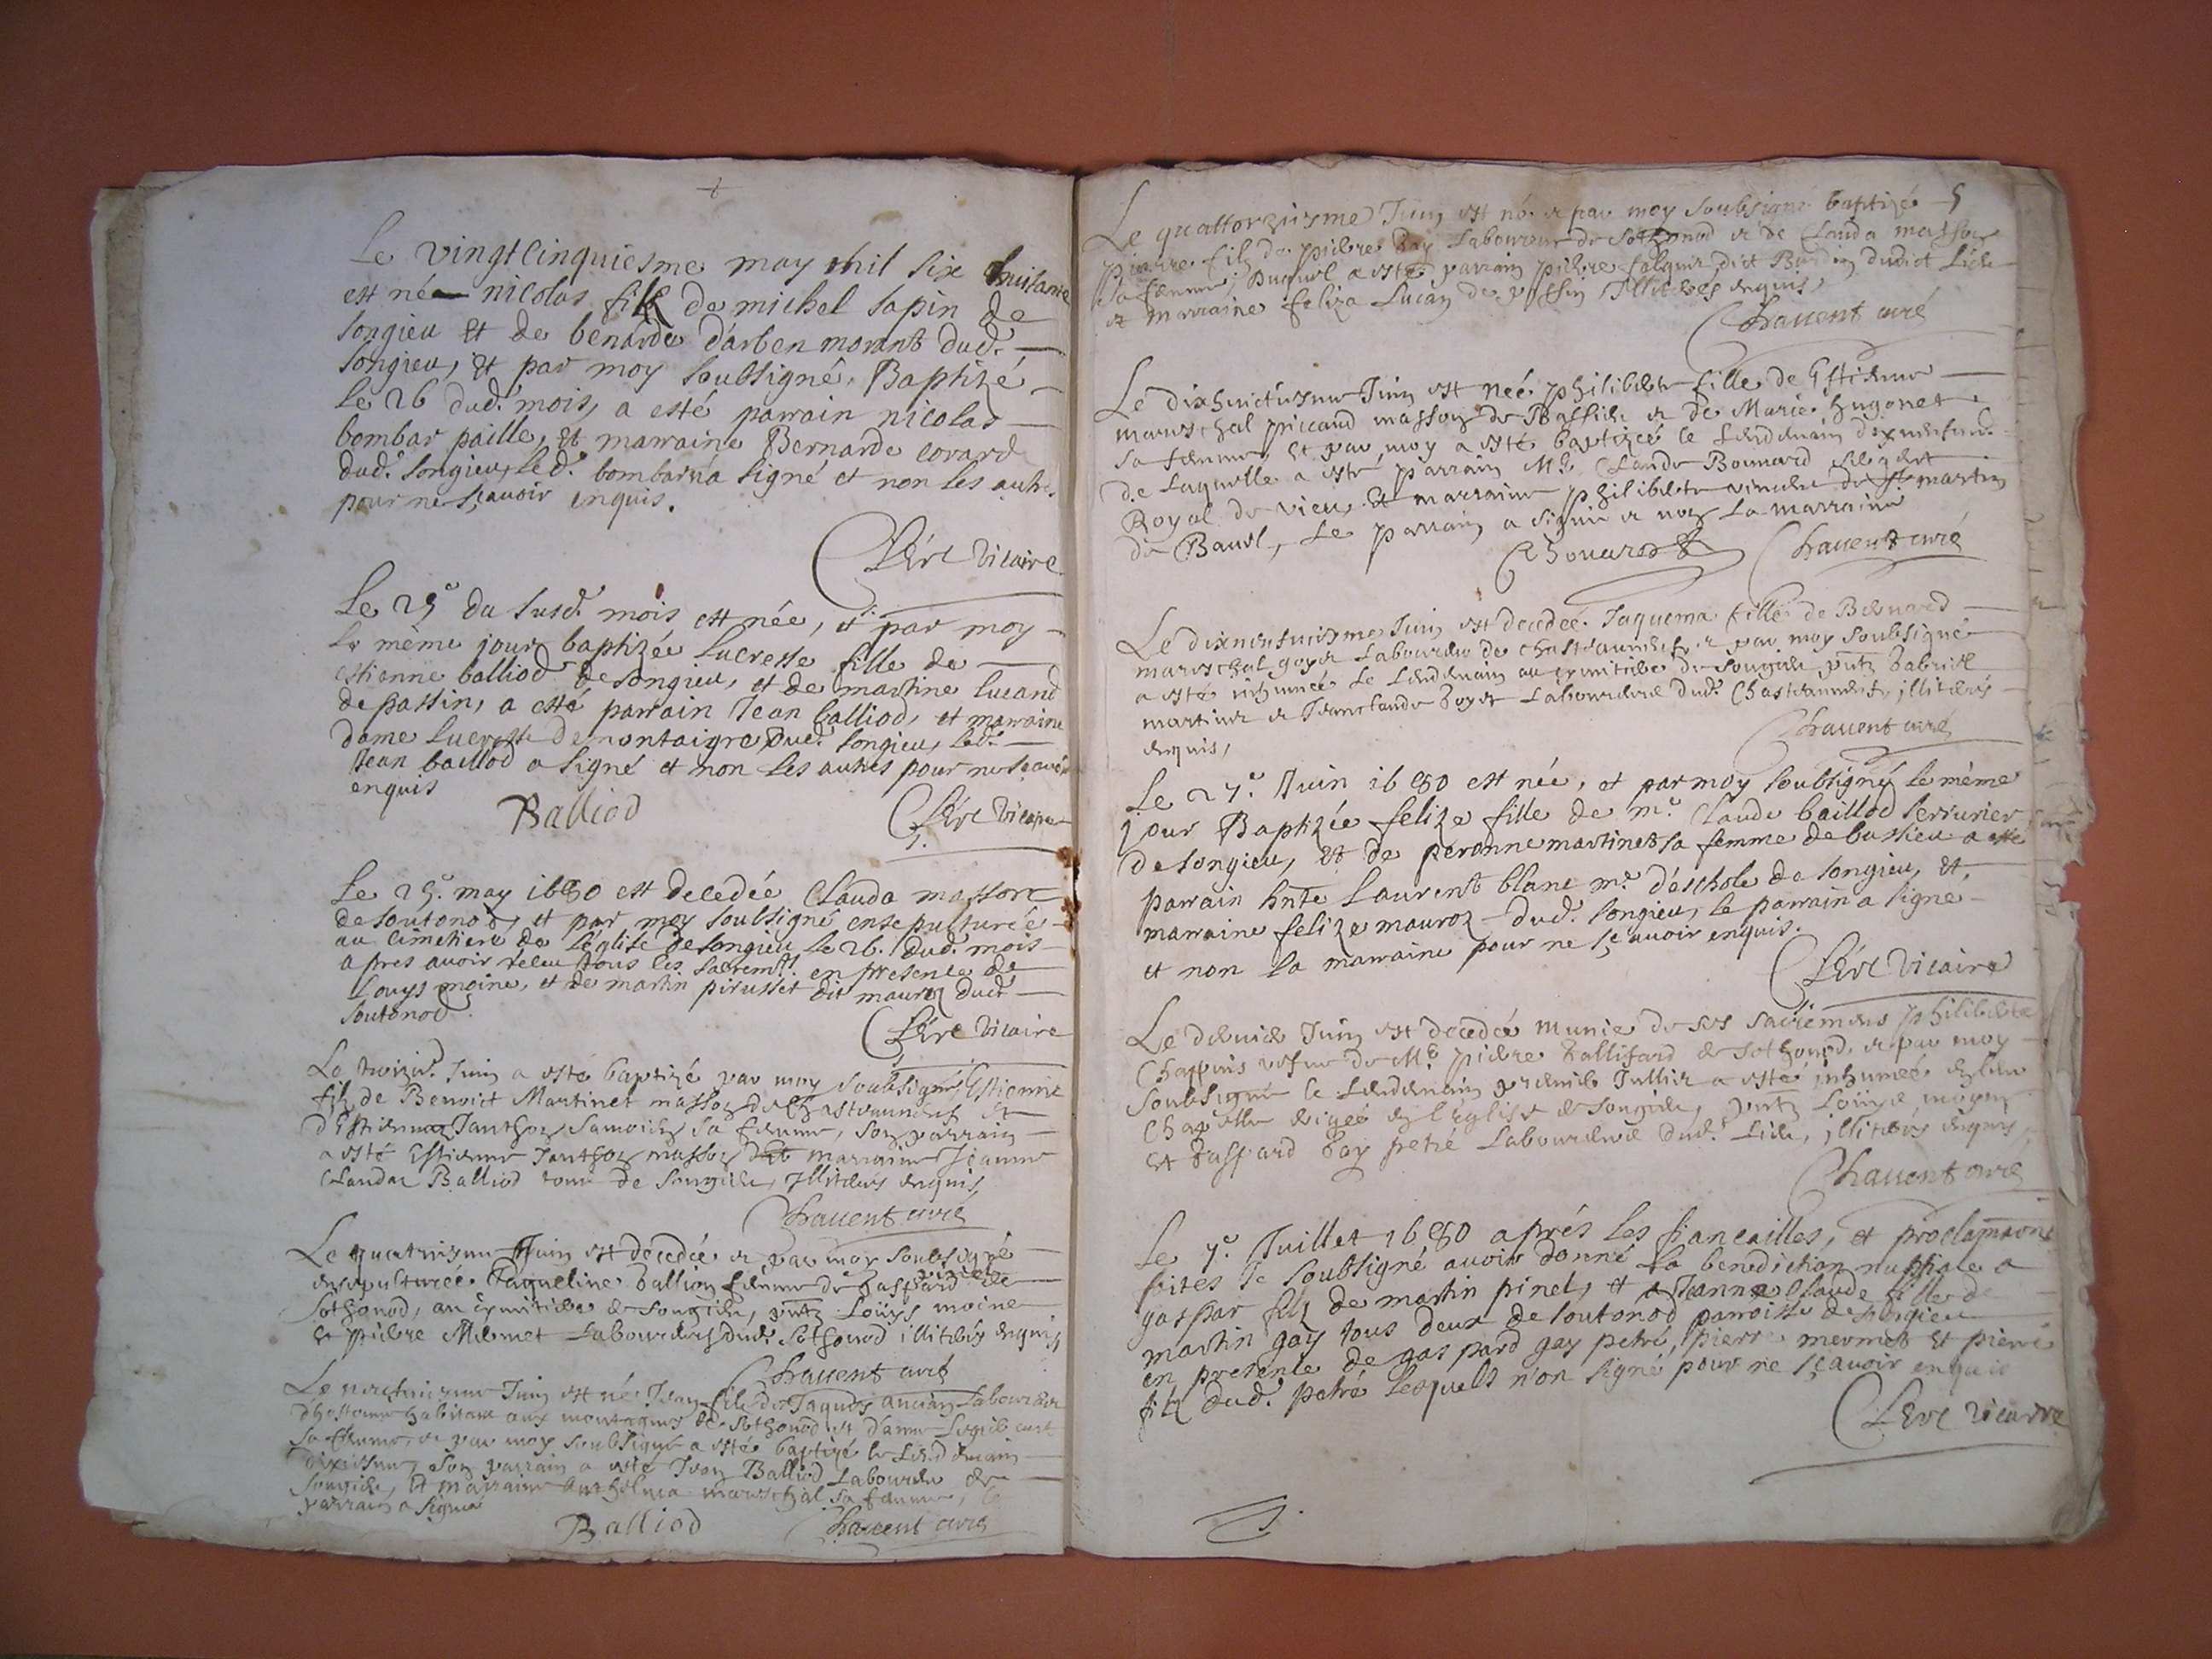 Le vingtcinquiesme may mil six huitante
est née nicolas fils de michel sapin de
songieu et de benarde d'arben morant dud.
songieu, et par moy soubsigné, Baptizé
le 26 dud. mois, a esté parrain nicolas
bombar paille, et marraine Bernarde corard
dud. songieu, led. bombar a signé et non les autres
pour ne sçavoir enquis.
Clérc vicaire
Le 25e du susd. mois est née, et par moy
le même jour baptizée Lucresse fille de
estienne balliod de songieu, et de martine lucand
de passin, a esté parrain Jean balliod, et marraine
dame Lucresse de montaigre dud. songieu, led.
Jean balliod a signé et non les autres pour ne sçavoir
enquis
Balliod
Clérc vicaire
Le 25e may 1680 est decedée Clauda masson
de soutonod, et par moy soubsigné ensepulturée
au cimetiere de l'église de songieu le 26. dud. mois
apres avoir receu tous les sacremts. en presence de
Louys moine, et de martin pirusset dit mauroz dud.
soutonod.
Clérc vicaire
Juin a esté baptizé par moy soubsigné Estienne
filz de Benoict Martinet masson de Chasteauneuf et
sa femme, son parrain
a esté Estienne masson marraine Jeanne
Clauda Balliod tous de Songieu, Illiterés enquis,
Chavent curé
Le quatriesme Juin est décédée et par moy soubsigné
ensepulturée Jaqueline femme de Gaspard pinel de
Sothonod, au cymitiere de Songieu, pntz Loüys moine
et pierre Mermet Laboureurs dud. Sothonod illiterés enquis
Chavent curé
Juin est né Jean filz de Jaques ancian Laboureur
habitant aux montagnes de Sothonod et d'anne
sa femme, et par moy soubsigné a esté baptizé le Lendemain
dixiesme, son parrain a esté Jean Balliod Laboureur de
Songieu, et marraine mareschal sa femme, le
parrain a signé
Balliod Chavent curé
Le quattorziesme Juin est né et par moy soubsigné baptizé 5
pierre filz de pierre Gay Laboureur de Sothonod et de Clauda masson
sa femme, Duquel a esté parrain pierre dict dudict Lieu
et marraine feliza Lucan de passin, Illiterés enquis,
Chavent curé
Le dixhuictiesme Juin est née philiberte fille de Estienne
mareschal piccand masson de et de Marie hugonet
sa femme, et par moy a esté baptizée le Lendemain dixneufme.
de Laquelle a esté parrain Me. Claude Bonnard
Royal de vieu et marraine philiberte de St. martin
de Bavel, Le parrain a signé et non La marraine
Chavent curé
Le dixneufviesme Juin est décedée Jaquema fille de Bernard
mareschal goyet Laboureur de chasteauneuf, et par moy soubsigné
a esté inhumée le Lendemain au cymitiere de songieu, pntz Gabriel
martinet et Janclaude Goyet Laboureurs dud. Chasteauneuf, illiterés
enquis,
Chavent curé
Le 27e. Juin 1680 est née, et par moy soubsigné le même
jour Baptizée felize fille de me. Claude baillod serrurier
de songieu, et de peronne martinet sa femme de a esté
parrain hnte Laurent blanc me. d'eschole de songieu, et,
marraine felize mauroz dud. songieu, le parrain a signé
et non la marraine pour ne sçavoir enquis.
Clérc vicaire
Le dernier Juin est decedée munie de ses sacremens philiberte
Chappuis vefve de Me. pierre de Sothonod, et par moy
soubsigné le Lendemain premier Jullie a esté inhumée en la
Chapelle erigée en l'Eglise de Songieu, pntz Loüys moyne
et Gaspard Gay petré Laboureurs dud. Lieu, illiterés enquis,
Chavent curé
Le 7e. Juillet 1680 aprés les fiancailles, et proclamaons
faites Je soubsigné avoir donné la benediction nuptiale a
gaspar filz de martin pinel, et a Jeanne Claude fille de
martin gay tous deux de soutonod parroisse de songieu
en presence de gaspard gay petré, pierre mermet et pierre
filz dud. petré lesquels n'on signé pour ne sçavoir enquis
Clérc vicaire